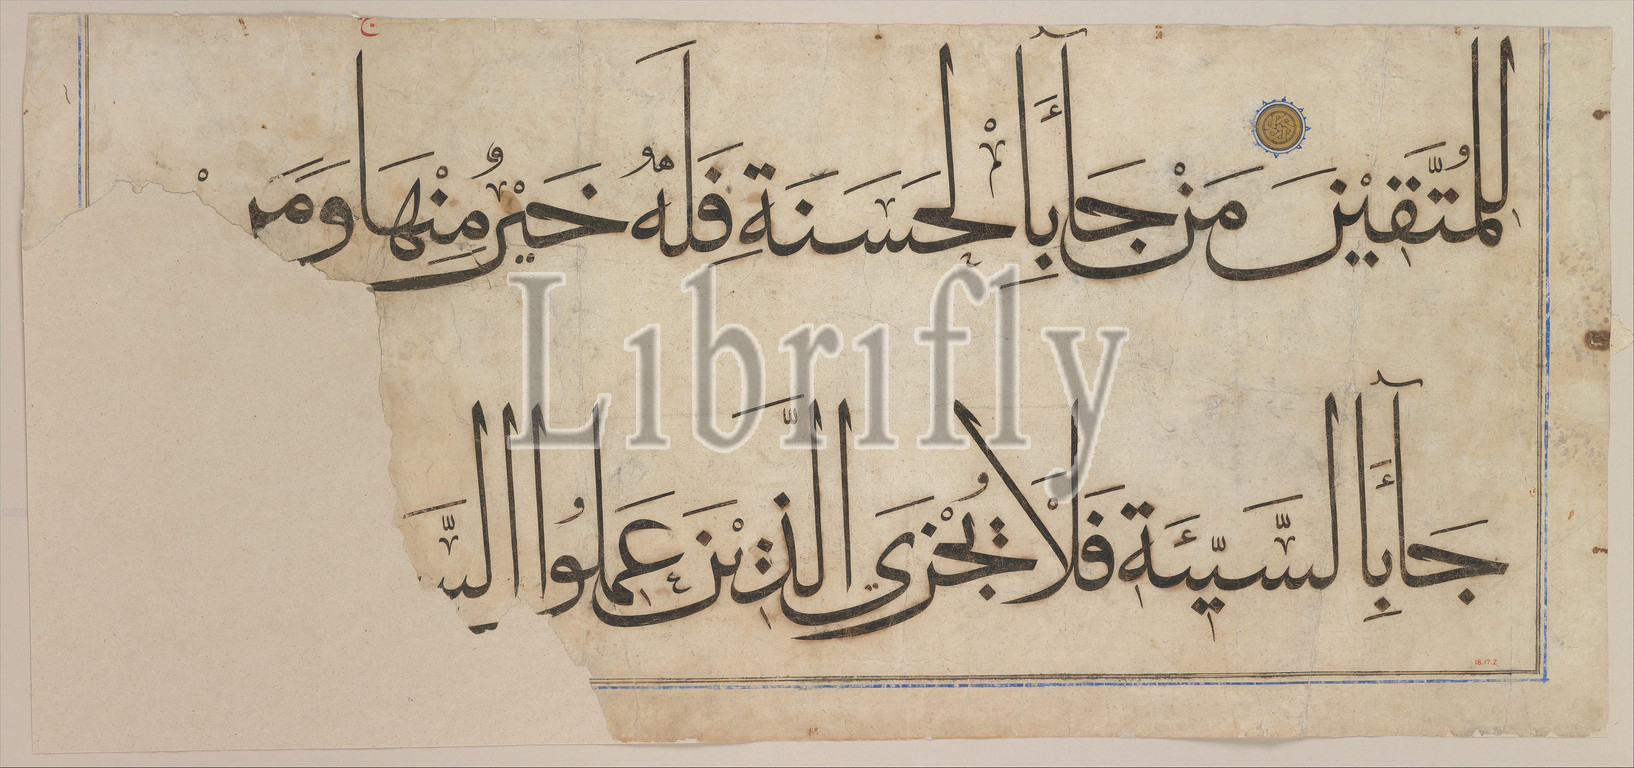 ج
للمُتَّقِيْنَ مَنْ جَآءَ بِالْحَسَنَةِ فَلَهُ خَيْرٌ مِنْهَا وَمَنْ
جَآءَ بِالسَّيِّئَةِ فَلَا يُجْزَى الَّذِيْنَ عَمِلُوا السَّيـ
Librifly
18.17.2